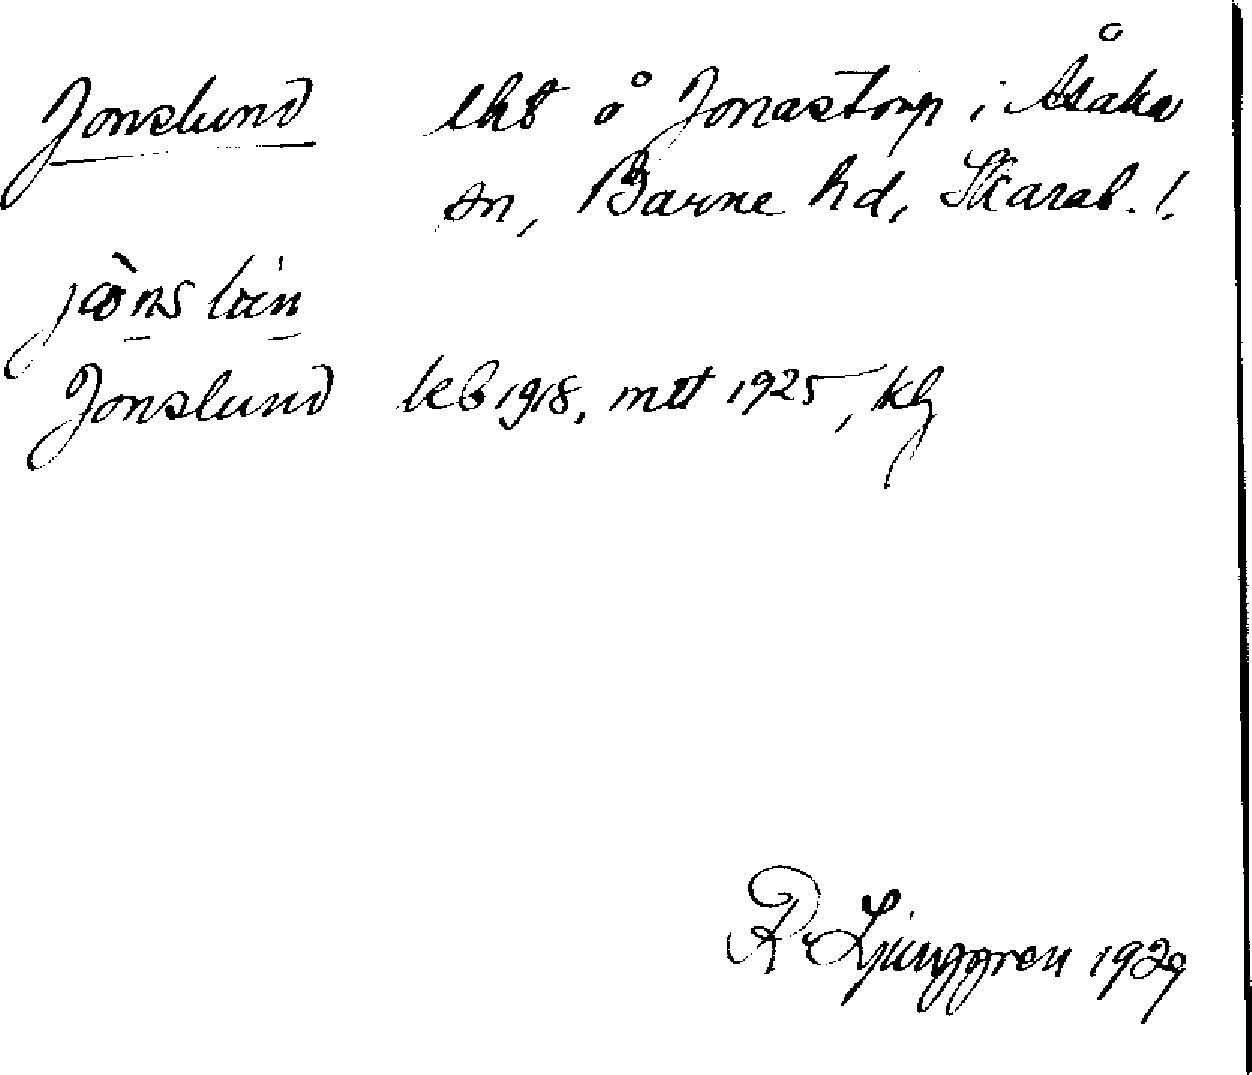 Jonslund lht å Jonastorp i Åsaka
sn, Barne hd, Skarab. l.
Jonslund kb 1918, mtl 1925,
R. Ljunggren 1929